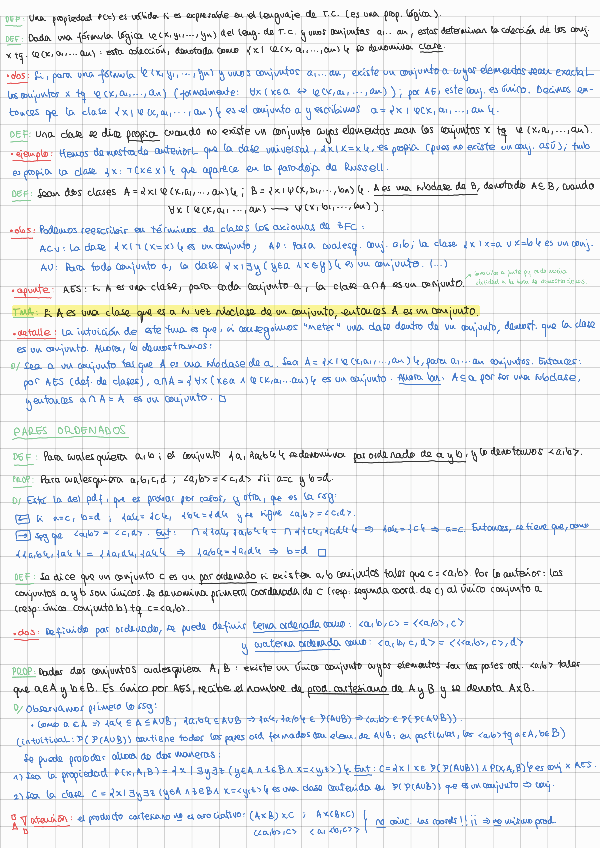 DEF: Una propiedad P(x) es válida si es expresable en el lenguaje de T.C. (es una prop. lógica).
DEF: Dada una fórmula lógica φ(x, y₁, ..., yn) del leng. de T.C. y unos conjuntos a₁...an, estos determinan la colección de los conj.
x tq. φ(x, a₁, ... an): esta colección, denotada como {x | φ(x, a₁, ..., an)} se denomina clase.
• obs: Si, para una fórmula φ(x, y₁, ..., yn) y unos conjuntos a₁...an, existe un conjunto a cuyos elementos sean exactat.
los conjuntos x tq φ(x, a₁, ..., an) (formalmente: ∀x (x∈a ↔ φ(x, a₁, ..., an)); por AE, este conj. es único. Decimos en-
tonces que la clase {x | φ(x, a₁, ..., an)} es el conjunto a y escribimos a = {x | φ(x, a₁, ..., an)}.
DEF: Una clase se dice propia cuando no existe un conjunto cuyos elementos sean los conjuntos x tq φ(x, a₁, ..., an).
• ejemplo: Hemos demostrado anteriort. que la clase universal, {x | x = x}, es propia (pues no existe un conj. así); tmb
es propia la clase {x : ¬(x∈x)} que aparece en la paradoja de Russell.
DEF: Sean dos clases A = {x | φ(x, a₁, ..., an)}; B = {x | ψ(x, b₁, ..., bm)}. A es una subclase de B, denotado A⊆B, cuando
∀x (φ(x, a₁, ..., an) → ψ(x, b₁, ..., bm)).
• obs: Podemos reescribir en términos de clases los axiomas de ZFC:
ACV: La clase {x | ¬(x = x)} es un conjunto; AP: Para cualesq. conj. a, b; la clase {x | x = a ∨ x = b} es un conj.
AU: Para todo conjunto a, la clase {x | ∃y (y∈a ∧ x∈y)} es un conjunto. (...)
• apunte: AES: Si A es una clase, para cada conjunto a, la clase a∩A es un conjunto.
TMA: Si A es una clase que es a su vez subclase de un conjunto, entonces A es un conjunto.
• detalle: La intuición de este tma es que, si conseguimos "meter" una clase dentro de un conjunto, demost. que la clase
es un conjunto. Ahora, lo demostramos:
D/ Sea a un conjunto tal que A es una subclase de a. Sea A = {x | φ(x, a₁, ..., an)}, para a₁...an conjuntos. Entonces:
por AES (def. de clases), a∩A = {∀x (x∈a ∧ φ(x, a₁, ... an)} es un conjunto. Ahora bien, A⊆a por ser una subclase,
y entonces a∩A = A es un conjunto. □
PARES ORDENADOS
DEF: Para cualesquiera a, b; el conjunto {a, {a, b}} se denomina par ordenado de a y b, y lo denotamos <a, b>.
PROP: Para cualesquiera a, b, c, d; <a, b> = <c, d> sii a = c y b = d.
D/ Está la del pdf, que es probar por casos, y otra, que es la sig:
⇐ Si a = c, b = d; {a} = {c}, {b} = {d} y se sigue <a, b> = <c, d>.
⇒ Spg que <a, b> = <c, d>. Ent: ∩{{a}, {a, b}} = ∩{{c}, {c, d}} ⇒ {a} = {c} ⇒ a = c. Entonces, se tiene que, como
{{a, b}, {a}} = {{a, d}, {a}} ⇒ {a, b} = {a, d} ⇒ b = d □
DEF: Se dice que un conjunto c es un par ordenado si existen a, b conjuntos tales que c = <a, b>. Por lo anterior: los
conjuntos a y b son únicos. Se denomina primera coordenada de c (resp. segunda coord. de c) al único conjunto a
(resp: único conjunto b) tq c = <a, b>.
• obs: Definido par ordenado, se puede definir terna ordenada como: <a, b, c> = <<a, b>, c>
y cuaterna ordenada como: <a, b, c, d> = <<<a, b>, c>, d>
PROP: Dados dos conjuntos cualesquiera A, B: existe un único conjunto cuyos elementos son los pares ord. <a, b> tales
que a∈A y b∈B. Es único por AES, recibe el nombre de prod. cartesiano de A y B y se denota A×B.
D/ Observamos primero lo sig:
• Como a∈A ⇒ {a} ⊆ A ⊆ A∪B, {a, b} ⊆ A∪B ⇒ {a}, {a, b} ∈ P(A∪B) ⇒ <a, b> ∈ P(P(A∪B)).
(intuitivat: P(P(A∪B)) contiene todos los pares ord formados con elem. de A∪B; en particular, los <a, b> tq a∈A, b∈B)
Se puede probar ahora de dos maneras:
1) Sea la propiedad P(x, A, B) = {x | ∃y∃z (y∈A ∧ z∈B ∧ x = <y, z>)}. Ent: C = {x | x∈P(P(A∪B)) ∧ P(x, A, B)} es conj x AES.
2) Sea la clase C = {x | ∃y∃z (y∈A ∧ z∈B ∧ x = <y, z>)} es una clase contenida en P(P(A∪B)) que es un conjunto ⇒ conj.
atención: el producto cartesiano no es asociativo: (A×B)×C ; A×(B×C) | no coinc. las coords!!¡¡ ⇒ no mismo prod
<<a, b>, c> <a, <b, c>>